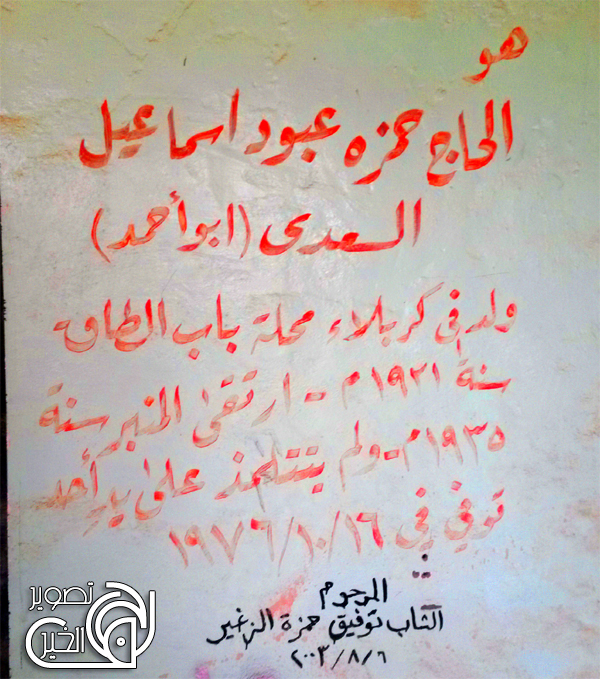 هو
الحاج حمزه عبود اسماعيل
السعدي (ابو أحمد)
ولد في كربلاء محلة باب الطاق
سنة ١٩٢١م - ارتقى المنبر سنة
١٩٣٥م - ولم يتتلمذ على يد أحد
توفي في ١٩٧٦/١٠/١٦
المرحوم
الشاب توفيق حمزة الزغير
٢٠٠٣/٨/٦
تصوير
الخير